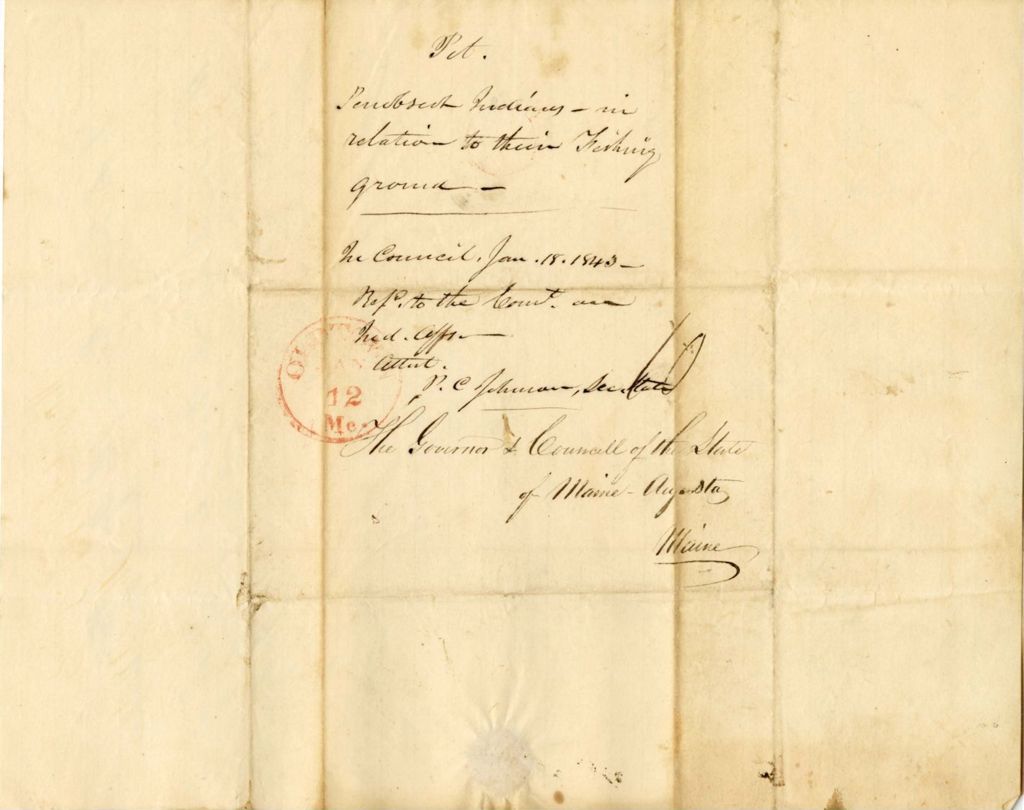 Pet.
Penobscot Indians - in
relation to their Fishing
ground -
In Council, Jan. 18. 1843 -
Refd. to the Comt. on
Ind. Affs.
Attest.
P. C. Johnson, Sec State
10
JAN
12
Me.
The Governor & Councell of the State
of Maine - Augusta
Maine